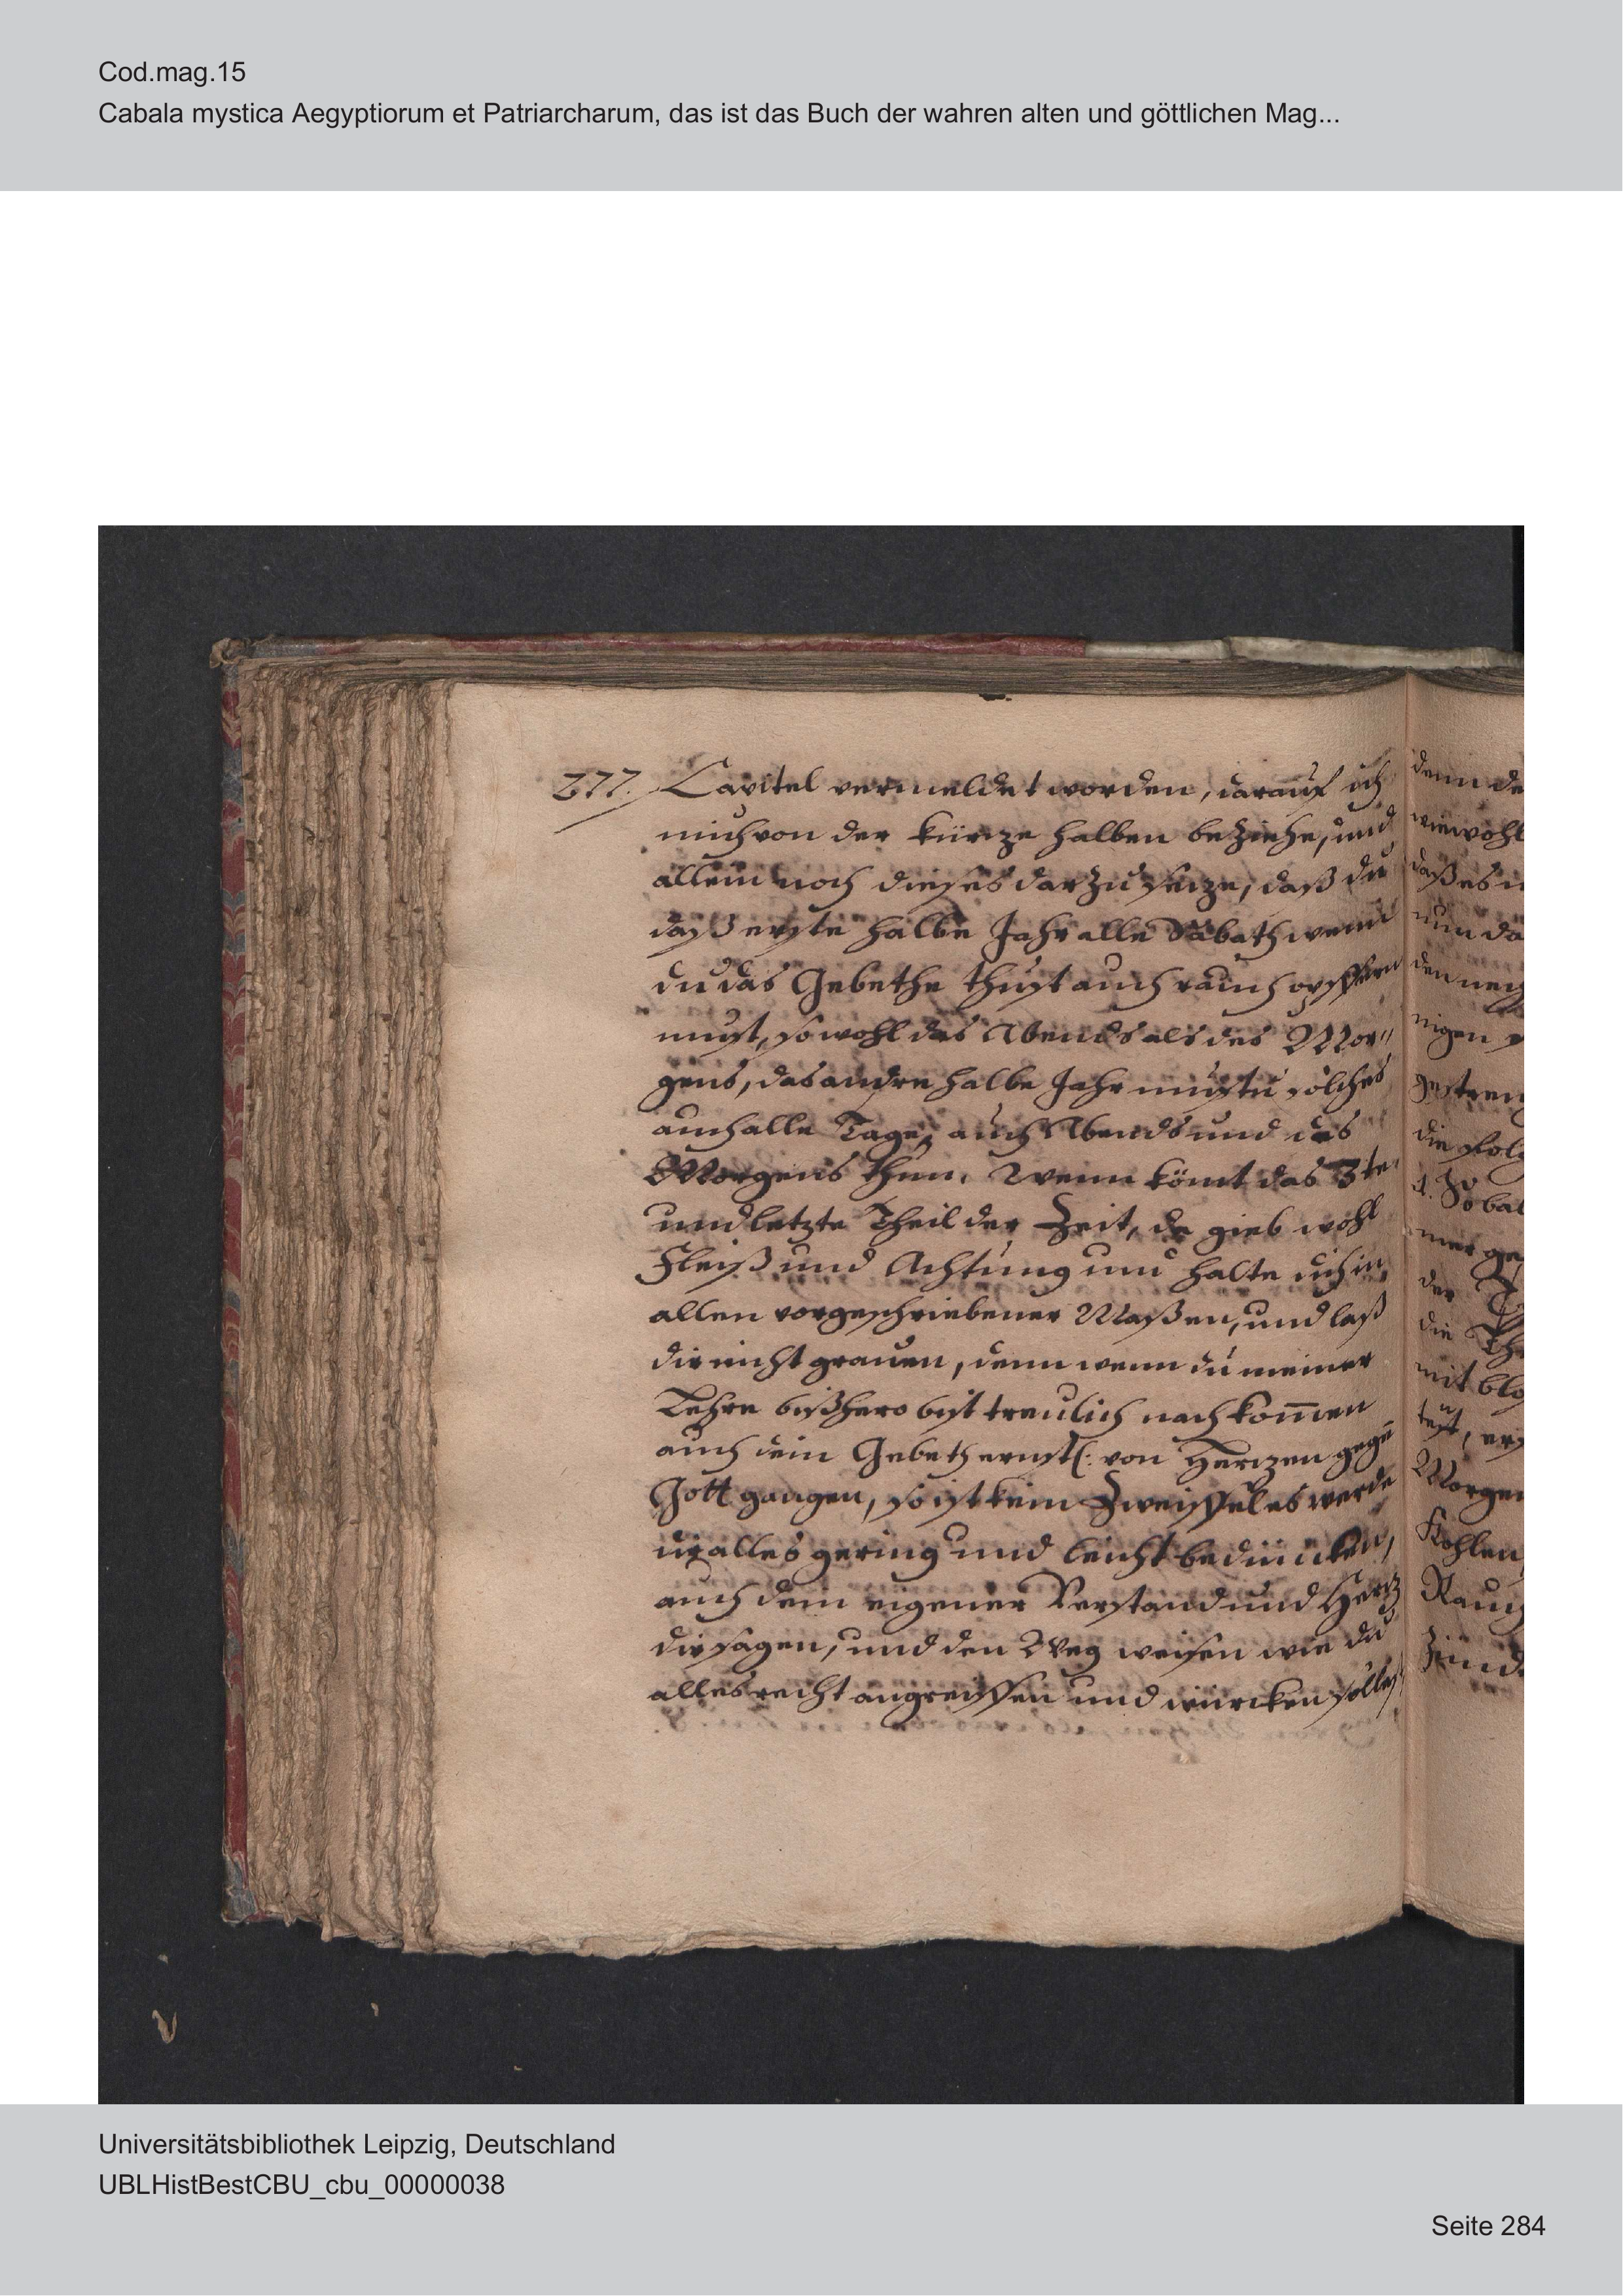 Cod.mag.15
Cabala mystica Aegyptiorum et Patriarcharum, das ist das Buch der wahren alten und göttlichen Mag...
277. Capitel vermeldet worden, darauf ich
mich von der kürtze halben beziehe, und
allein noch dieses darzu setze, daß du
daß erste halbe Jahr alle Sabath wenn
du das Gebethe thust auch rauch opffern
must, so wohl des Abends als des Mor"
gens, das andre halbe Jahr mustu solches
auch alle Tage, auch Abends und des
Morgens thun. Wenn kömt das 3te
und letzte Theil der Zeit, da gieb wohl
Fleiß und Achtung und halte dich in
allen vorgeschriebener Maßen, und laß
dir nicht grauen, denn wenn du meiner
Lehre bißhero bist treulich nach kom̄en
auch dein Gebeth ernstl: von Hertzen gegē
Gott gangen, so ist kein Zweiffel es werde
dir alles gering und leicht bedüncken,
auch dein eigener Verstand und Hertz
dir sagen, und den Weg weisen wie du
alles recht angreiffen und würcken sollest
denn de
wiewohl
daß es n
nun da
den
nigen
gestren
die folg
d. So bal
mer ge
der
die Th
mit blo
test, ers
Morgen
Kohlen
Rauch
Universitätsbibliothek Leipzig, Deutschland
UBLHistBestCBU_cbu_00000038
Seite 284